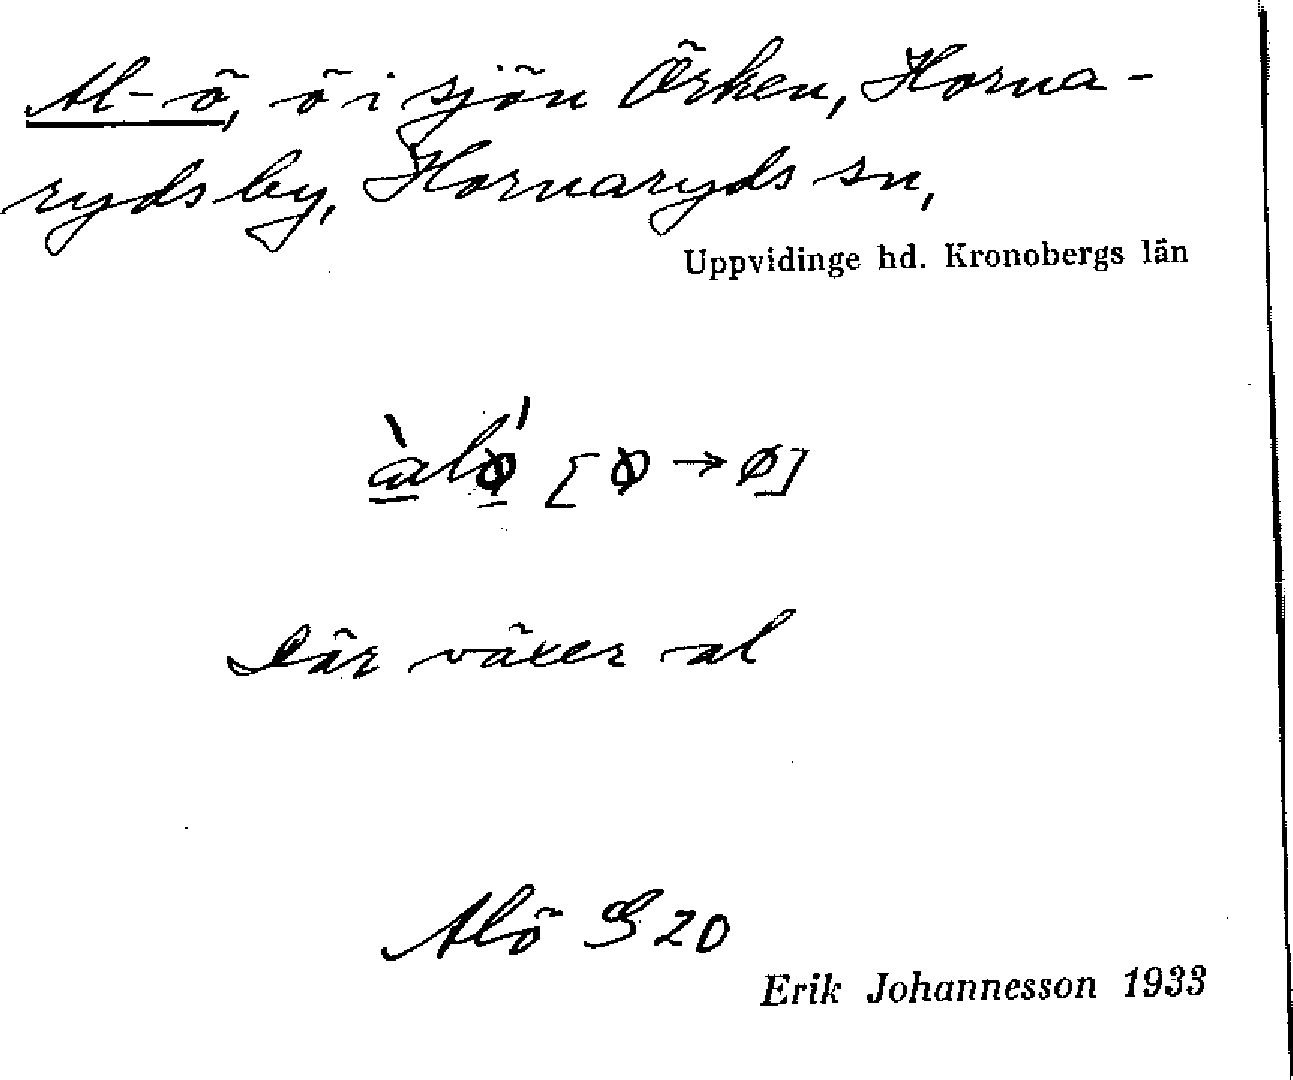 Al-ö, ö i sjön Örken, Horna-
ryds by, Hornaryds sn,
Uppvidinge hd. Kronobergs län
àlǿ [ꞷ → ø]
Där växer al
Alö S 20
Erik Johannesson 1933